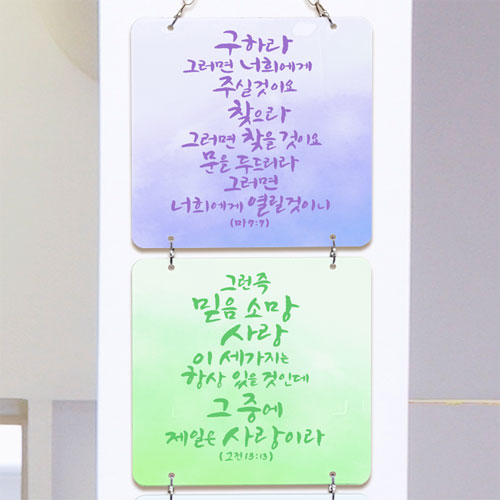 구하라
그러면 너희에게
주실것이요
찾으라
그러면 찾을 것이요
문을 두드리라
그러면
너희에게 열릴것이니
(마 7:7)
그런즉
믿음 소망
사랑
이 세가지는
항상 있을 것인데
그 중에
제일은 사랑이라
(고전 13:13)